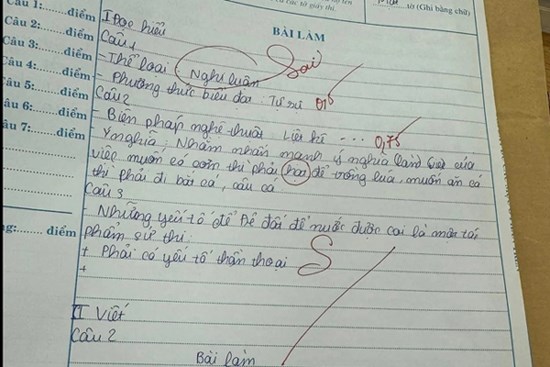 tờ (Ghi bằng chữ)
của các tờ giấy thi.
BÀI LÀM
Câu 1:......điểm
Câu 2:......điểm
Câu 3:......điểm
Câu 4:......điểm
Câu 5:......điểm
Câu 6:......điểm
Câu 7:......điểm
điểm
điểm
I Đọc hiểu
Câu 1
- Thể loại: Nghị luận Sai
- Phương thức biểu đạt: Tự sự 0,5
Câu 2
- Biện pháp nghệ thuật: Liệt kê ... 0,75
- Ý nghĩa: Nhằm nhấn mạnh ý nghĩa của
việc muốn có cơm thì phải để trồng lúa, muốn ăn cá
thì phải đi bắt cá, câu cá
Câu 3
- Những yếu tố để Đẻ đất đẻ nước được coi là một tác
phẩm sử thi:
+ Phải có yếu tố thần thoại S
+
II Viết
Câu 2
Bài làm